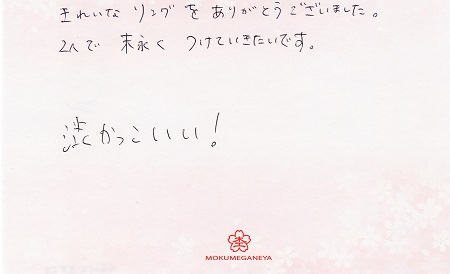 きれいな リングを ありがとうございました。
2人で 末永く つけていきたいです。
渋かっこいい!
MOKUMEGANEYA